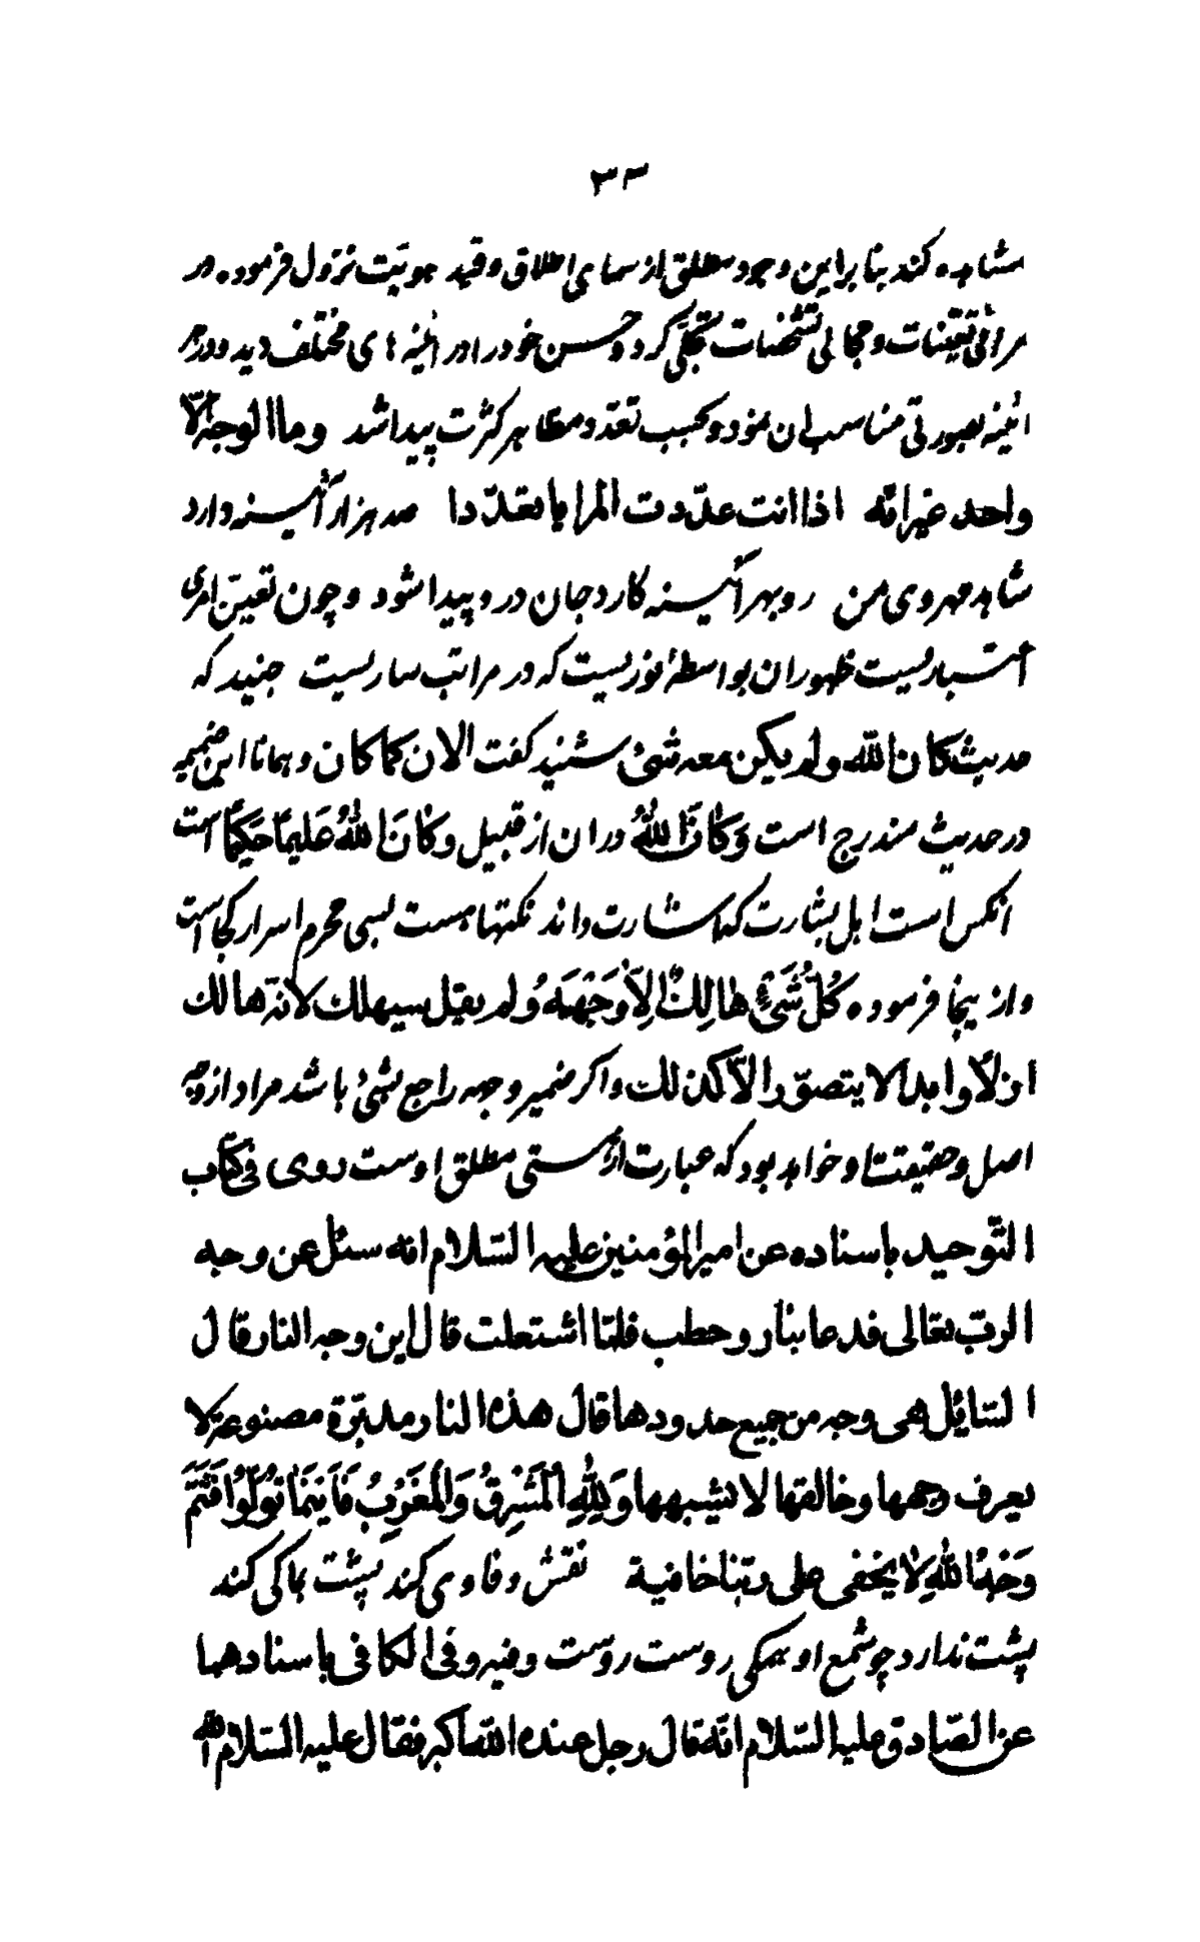 ٣٣
مشاهده کند بنا براین وجود مطلق از سمای اطلاق و قید هویّت نزول فرموده در
مرائی تعیّنات و مجالی تشخّصات تجلّی کرد و حسن خود را در ائینه های مختلف دید و در هر
ائینه بصورتی مناسب ان نمود و بحسب تعدّد مظاهر کثرت پیدا شد وما الوجه الّا
واحد غیر انّه اذا انت عدّدت المرایا تعدّدا صد هزار آئینه دارد
شاهد مهروی من رو بهر آئینه کارد جان درو پیدا شود و چون تعیّن امری
اعتباریست ظهور ان بواسطهٔ نوریست که در مراتب ساریست جنید که
حدیث کان الله ولم یکن معه شئ شنید کفت الان کما کان و همانا این ضمیمه
در حدیث مندرج است وَکَانَ اللهُ در ان از قبیل وکَانَ اللهُ عَلیماً حَکیماً است
انکس است اهل بشارت که اشارت داند نکتها هست بسی محرم اسرار کجاست
و از ینجا فرموده کُلُّ شَئٍ هَالِکٌ اِلاّ وَجْهَهُ ولم یقل سیهلک لانّه هالک
ازلاً وابداً لا یتصوّر الّا کذلک و اکر ضمیر وجهه راجع بشئ باشد مراد از وجه
اصل و حقیقتت او خواهد بود که عبارت از هستی مطلق اوست روی فی کتاب
التّوحید باسناده عن امیر المؤمنین علیه السّلام انّه سئل عن وجه
الربّ تعالی فدعا بنار وحطب فلمّا اشتعلت قال این وجه النار قال
السّائل هی وجه من جمیع حدودها قال هذه النار مدبّرة مصنوعة لا
یعرف وجهها وخالقها لا یشبهها وَلِلّهِ الْمَشْرِقُ وَالْمَغْرِبُ فَاَیْنَمَا تُوَلُّوا فَثَمَّ
وَجْهُ اللهِ لا یخفی علی ربّنا خافیة نقش وفا وی کند پشت بما کی کند
پشت ندارد چو شمع او همکی روست روست وفیه وفی الکافی باسنادهما
عن الصّادق علیه السّلام انّه قال رجل عنده الله اکبر فقال علیه السّلام الله